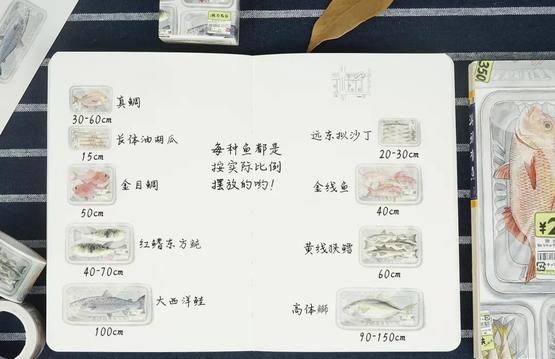 真鲷
30-60cm
长体油胡瓜
15cm
金目鲷
50cm
红鳍东方鲀
40-70cm
大西洋鲑
100cm
每种鱼都是
按实际比例
摆放的哟!
远东拟沙丁
20-30cm
金线鱼
40cm
黄线狭鳕
60cm
高体鰤
90-150cm
350